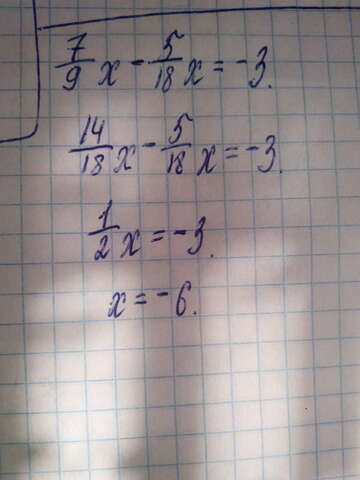 7/9 x - 5/18 x = -3.
14/18 x - 5/18 x = -3.
1/2 x = -3.
x = -6.